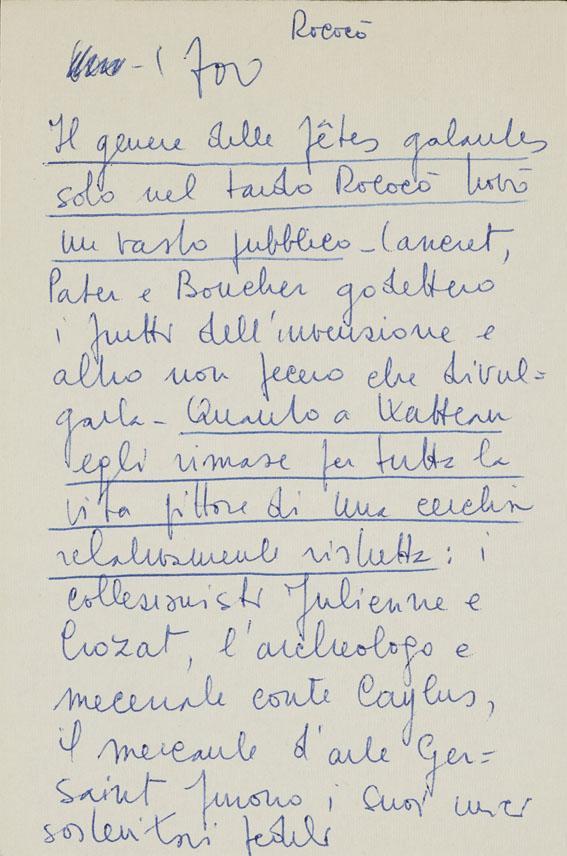 Rococò
Il genere delle fêtes galantes
solo nel tardo Rococò trovò
un vasto pubblico - Lancret,
Pater e Boucher godettero
i frutti dell'invenzione e
altro non fecero che divul=
garla - Quanto a Watteau
egli rimase per tutta la
vita pittore di una cerchia
relativamente ristretta: i
collezionisti Julienne e
Crozat, l'archeologo e
mecenate conte Caylus,
il mercante d'arte Ger=
saint furono i suoi unici
sostenitori fedeli